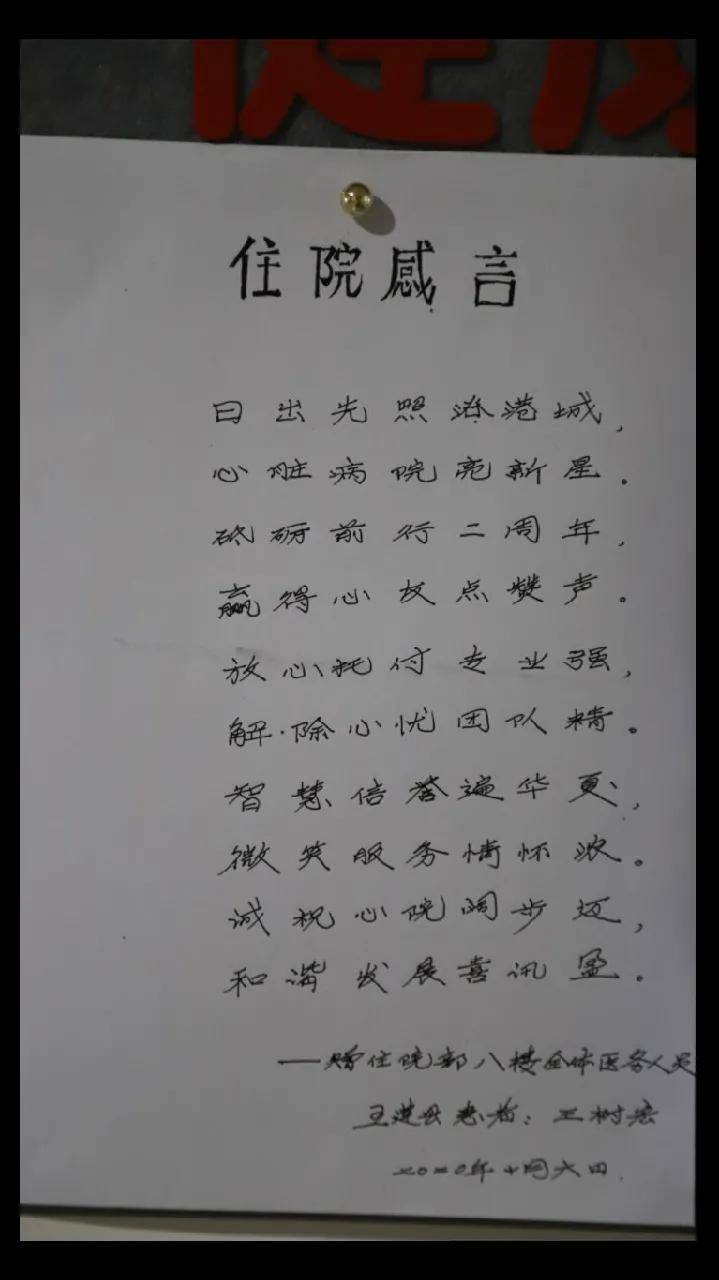 住院感言
日出先照港城,
心脏病院亮新星.
砥砺前行二周年,
赢得心友点赞声。
放心托付专业强,
解除心忧团队精。
智慧信誉遍华夏,
微笑服务情怀浓。
诚祝心院阔步迈,
和谐发展喜讯盈.
——赠住院部八楼全体医务人员
五莲县患者:王树
二〇二〇年十月六日.